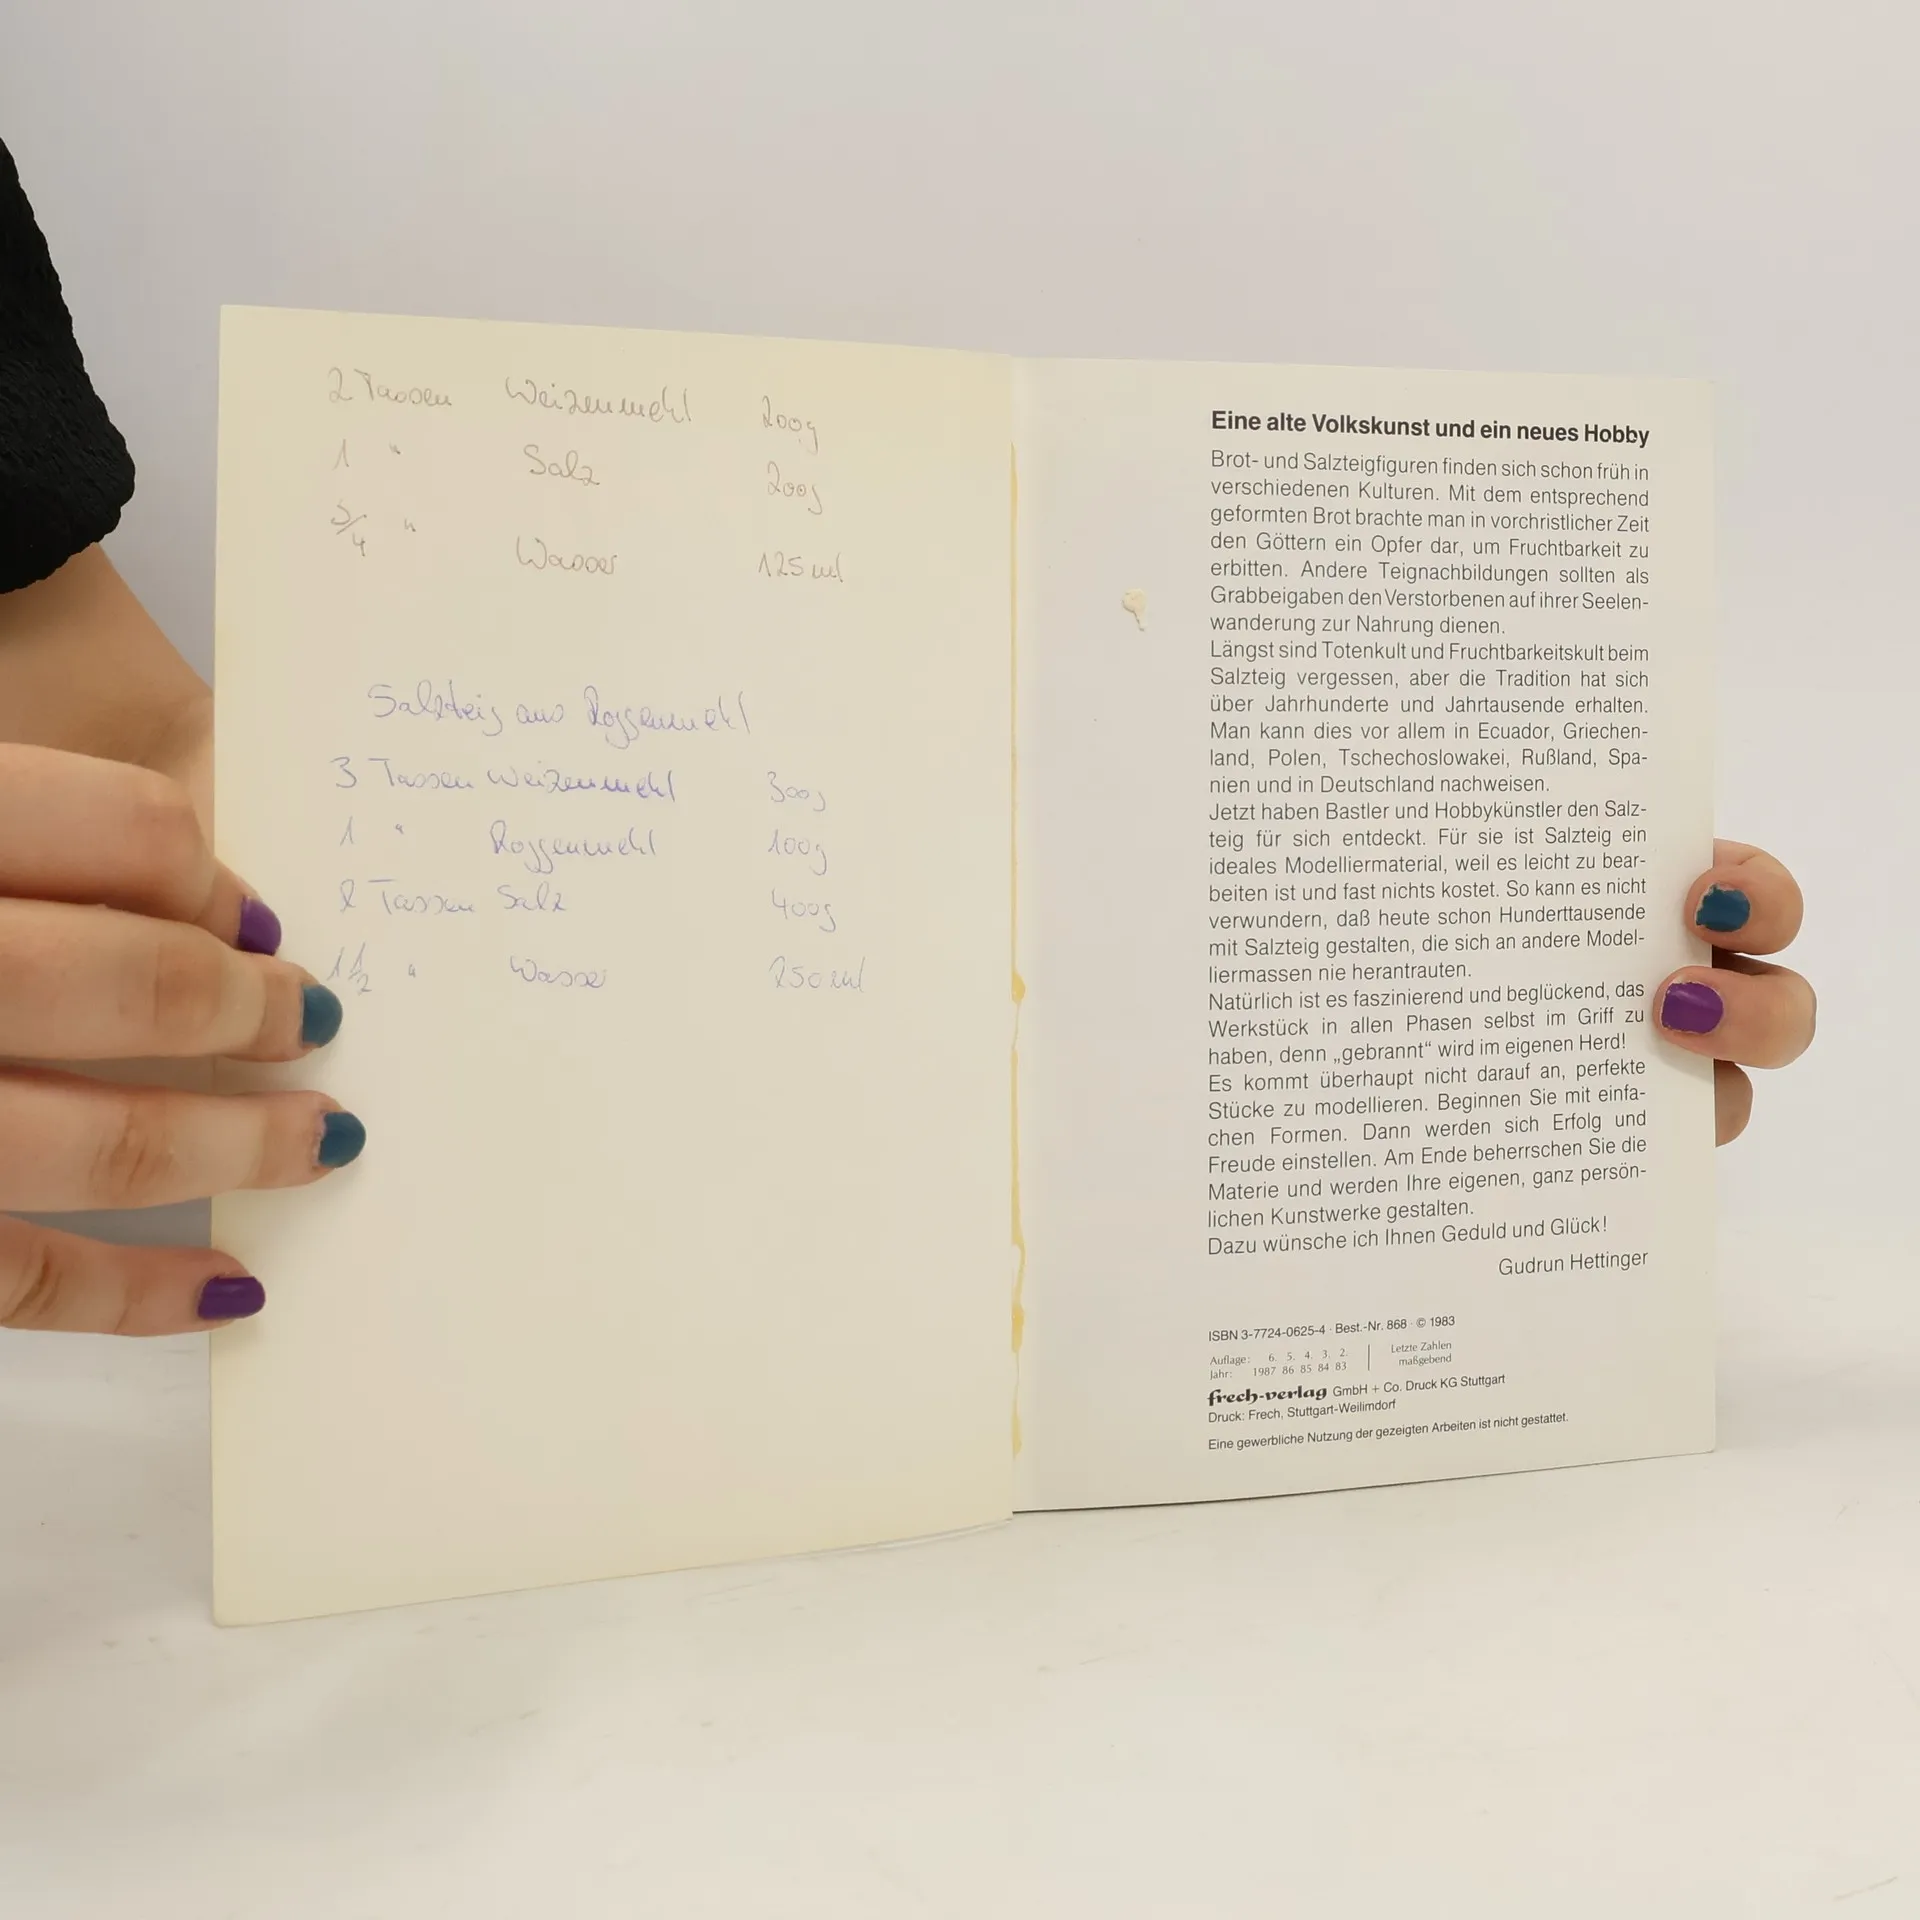 2 Tassen Weizenmehl 200g
1 " Salz 200g
3/4 "
Wasser 125 ml
Salzteig aus Roggenmehl
3 Tassen Weizenmehl 300g
1 " Roggenmehl 100g
2 Tassen Salz 400g
1 1/2 " Wasser 250 ml
Eine alte Volkskunst und ein neues Hobby
Brot- und Salzteigfiguren finden sich schon früh in
verschiedenen Kulturen. Mit dem entsprechend
geformten Brot brachte man in vorchristlicher Zeit
den Göttern ein Opfer dar, um Fruchtbarkeit zu
erbitten. Andere Teignachbildungen sollten als
Grabbeigaben den Verstorbenen auf ihrer Seelen-
wanderung zur Nahrung dienen.
Längst sind Totenkult und Fruchtbarkeitskult beim
Salzteig vergessen, aber die Tradition hat sich
über Jahrhunderte und Jahrtausende erhalten.
Man kann dies vor allem in Ecuador, Griechen-
land, Polen, Tschechoslowakei, Rußland, Spa-
nien und in Deutschland nachweisen.
Jetzt haben Bastler und Hobbykünstler den Salz-
teig für sich entdeckt. Für sie ist Salzteig ein
ideales Modelliermaterial, weil es leicht zu bear-
beiten ist und fast nichts kostet. So kann es nicht
verwundern, daß heute schon Hunderttausende
mit Salzteig gestalten, die sich an andere Model-
liermassen nie herantrauten.
Natürlich ist es faszinierend und beglückend, das
Werkstück in allen Phasen selbst im Griff zu
haben, denn „gebrannt“ wird im eigenen Herd!
Es kommt überhaupt nicht darauf an, perfekte
Stücke zu modellieren. Beginnen Sie mit einfa-
chen Formen. Dann werden sich Erfolg und
Freude einstellen. Am Ende beherrschen Sie die
Materie und werden Ihre eigenen, ganz persön-
lichen Kunstwerke gestalten.
Dazu wünsche ich Ihnen Geduld und Glück!
Gudrun Hettinger
ISBN 3-7724-0625-4 · Best.-Nr. 868 · © 1983
Auflage: 6. 5. 4. 3. 2. | Letzte Zahlen
Jahr: 1987 86 85 84 83 | maßgebend
frech-verlag GmbH + Co. Druck KG Stuttgart
Druck: Frech, Stuttgart-Weilimdorf
Eine gewerbliche Nutzung der gezeigten Arbeiten ist nicht gestattet.